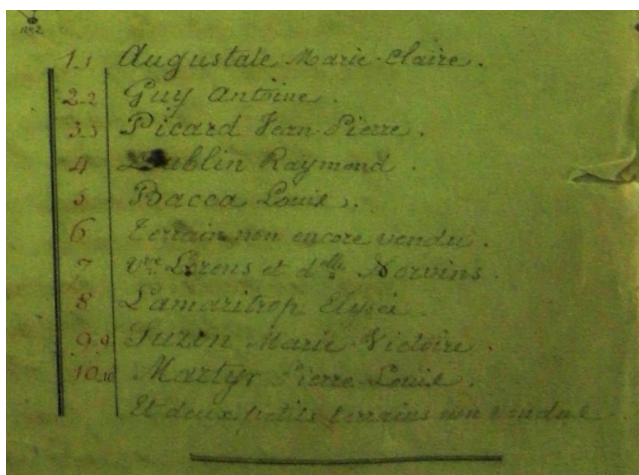 No 2
1.1 Augustale Marie-Claire.
2.2 Guy Antoine.
3.3 Picard Jean-Pierre.
4 Dublin Raymond.
5 Bacca Louis.
6 Terrain non encore vendu.
7 Vve Lorens et dlle Norvins.
8 Lamaritrop Elysée
9.9 Suzon Marie-Victoire.
10.10 Martyr Pierre-Louis.
Et deux petits terrains non vendus